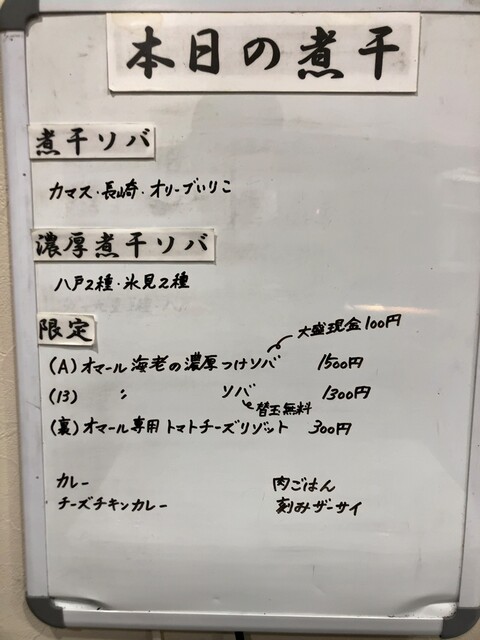 本日の煮干
煮干ソバ
カマス・長崎・オリーブいりこ
濃厚煮干ソバ
八戸2種・氷見2種
限定
大盛現金100円
(A)オマール海老の濃厚つけソバ 1500円
(B) 〃 ソバ 1300円
替玉無料
(裏)オマール専用トマトチーズリゾット 300円
カレー 肉ごはん
チーズチキンカレー 刻みザーサイ